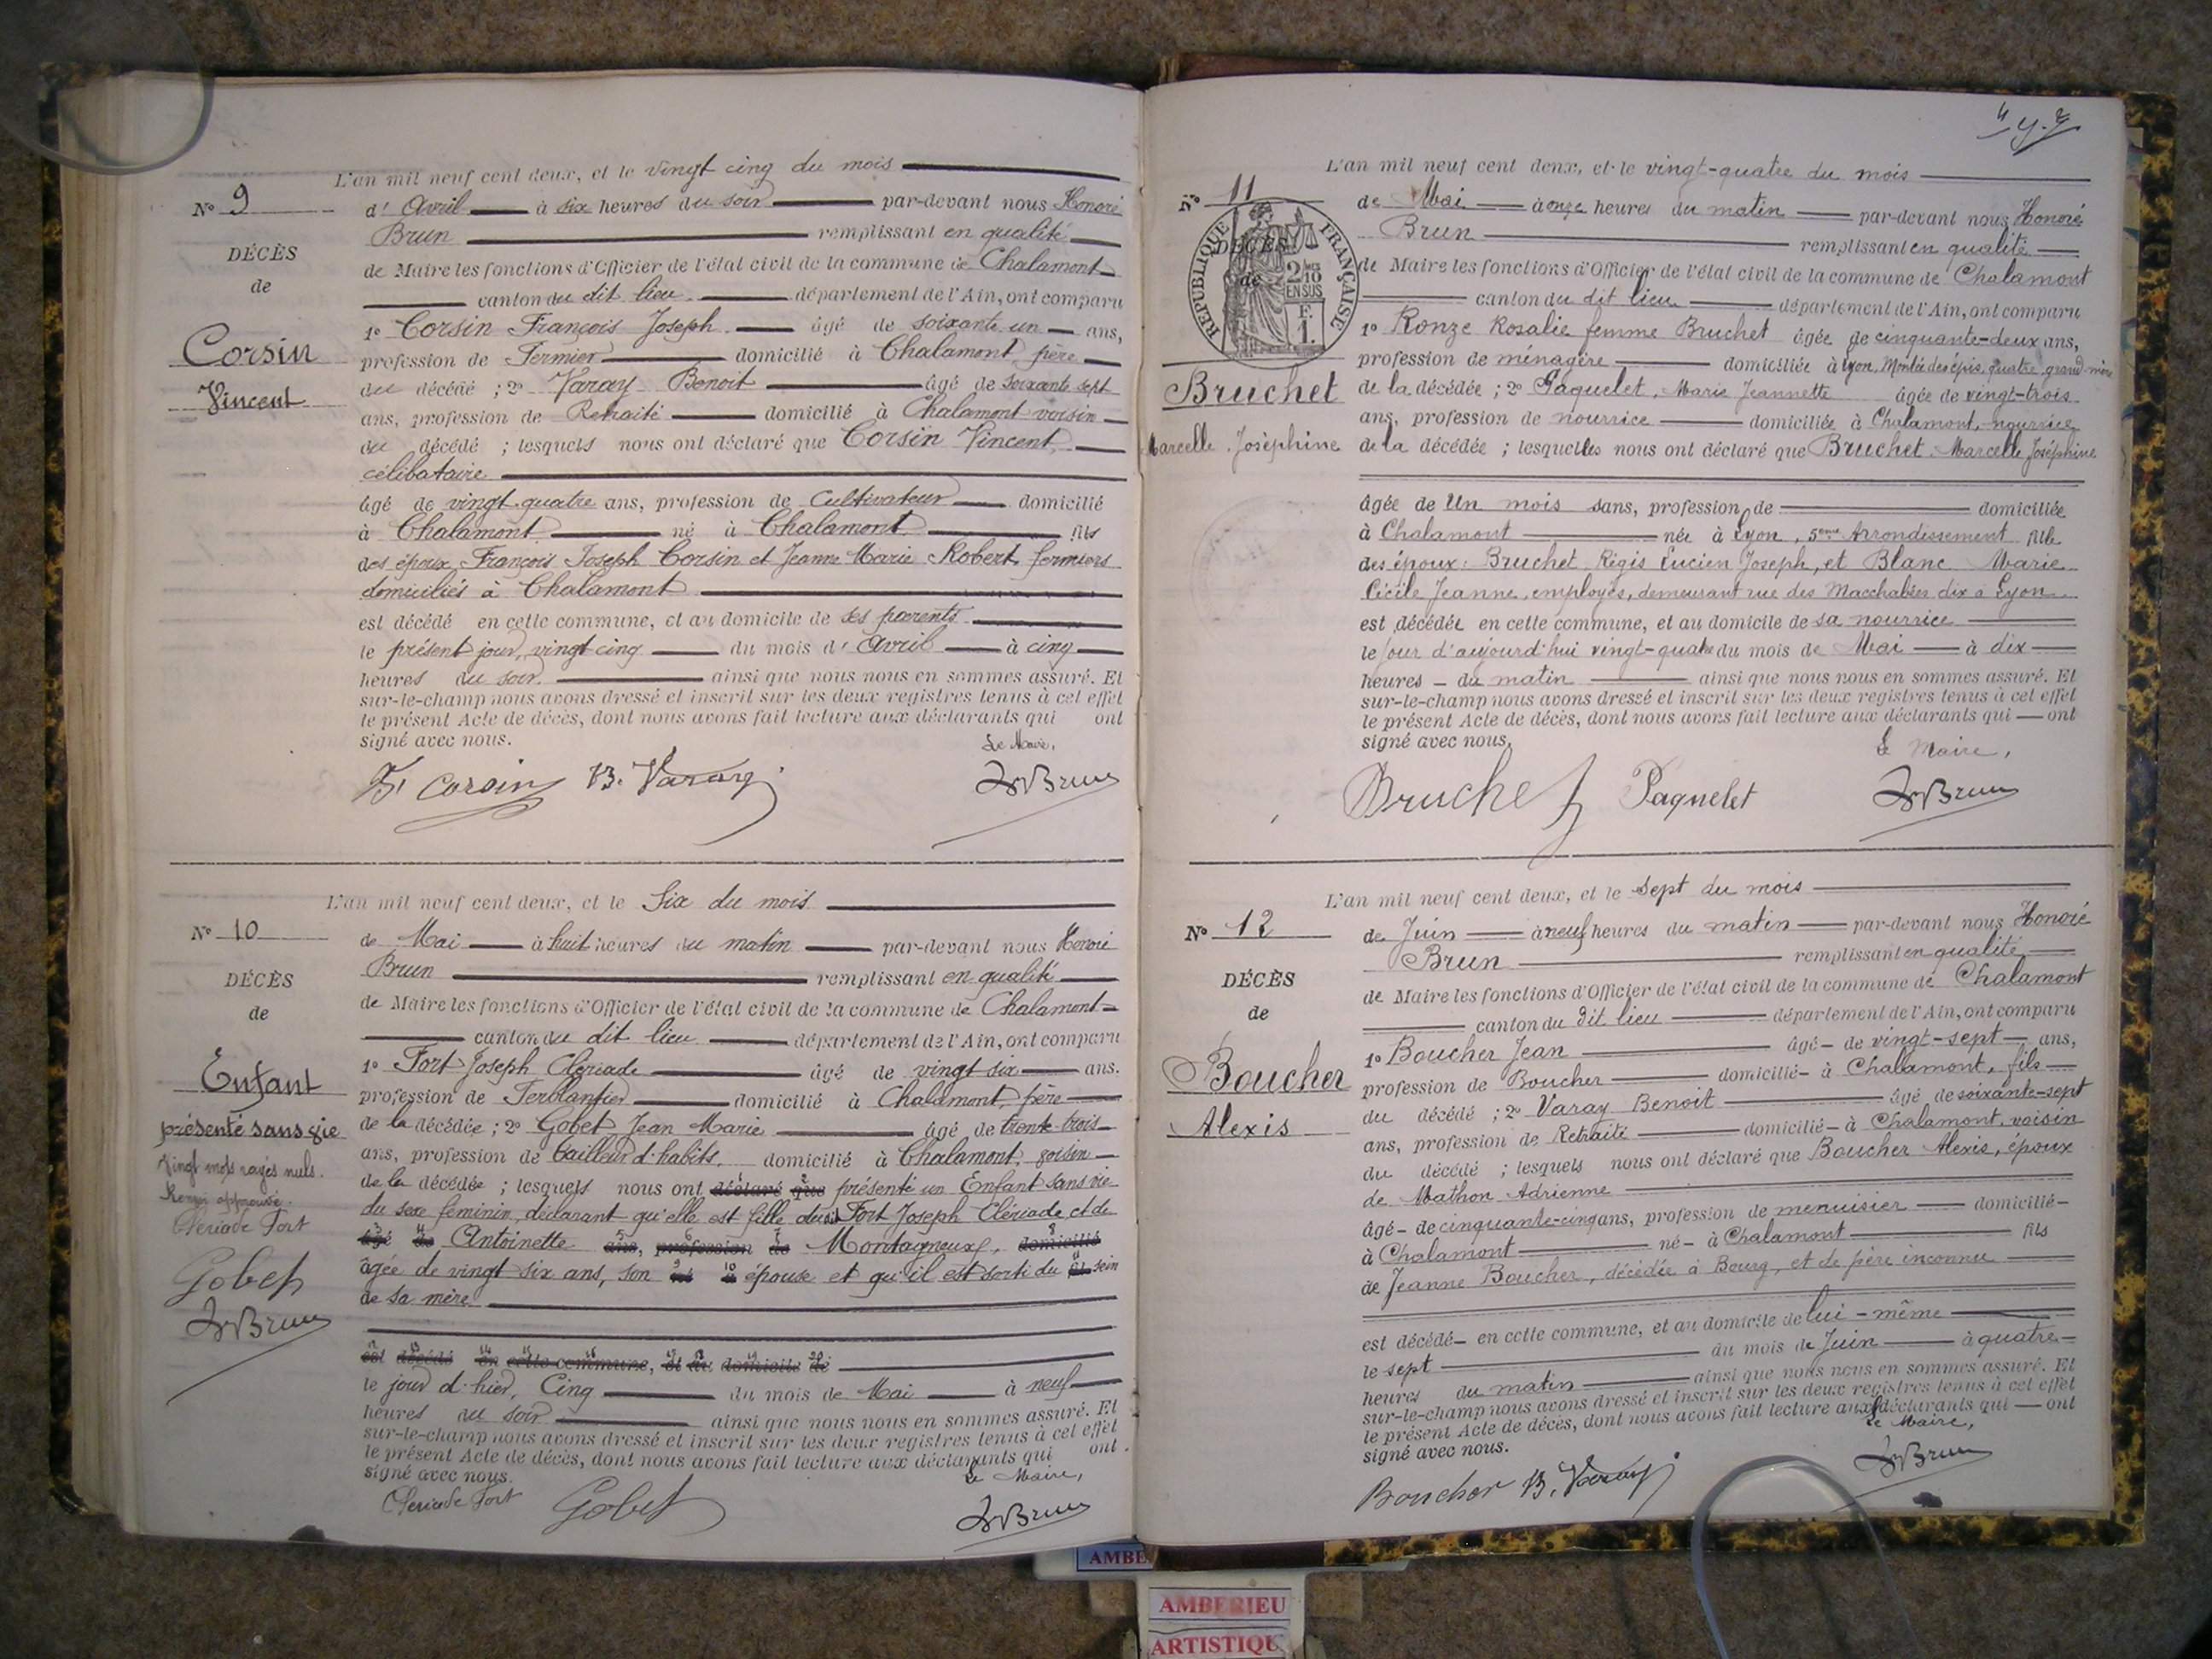 L'an mil neuf cent deux, et le vingt cinq du mois
N° 9
d' Avril à six heures du soir par-devant nous Honoré
Brun remplissant en qualité
DÉCÈS
de Maire les fonctions d'Officier de l'état civil de la commune de Chalamont
de
canton du dit lieu département de l'Ain, ont comparu
1° Corsin François Joseph âgé de soixante un ans,
Corsin
profession de Fermier domicilié à Chalamont, père
du décédé ; 2° Varay Benoit âgé de soixante sept
Vincent
ans, profession de Retraité domicilié à Chalamont voisin
du décédé ; lesquels nous ont déclaré que Corsin Vincent,
célibataire
âgé de vingt quatre ans, profession de Cultivateur domicilié
à Chalamont né à Chalamont fils
des époux François Joseph Corsin et Jeanne Marie Robert, fermiers
domiciliés à Chalamont
est décédé en cette commune, et au domicile de ses parents
le présent jour, vingt cinq du mois d' Avril à cinq
heures du soir. ainsi que nous nous en sommes assuré. Et
sur-le-champ nous avons dressé et inscrit sur les deux registres tenus à cet effet
le présent Acte de décès, dont nous avons fait lecture aux déclarants qui ont
signé avec nous.
Le Maire,
F. Corsin B. Varay Brun
L'an mil neuf cent deux, et le Six du mois
N° 10
de Mai à huit heures du matin par-devant nous Honoré
Brun remplissant en qualité
DÉCÈS
de Maire les fonctions d'Officier de l'état civil de la commune de Chalamont
de
canton du dit lieu département de l'Ain, ont comparu
1° Fort Joseph Clériade âgé de vingt six ans.
Enfant
profession de Ferblantier domicilié à Chalamont, père
présenté sans vie
de la décédée ; 2° Gobet Jean Marie âgé de trente trois
Vingt mots rayés nuls.
ans, profession de tailleur d'habits. domicilié à Chalamont, voisin
Renvoi approuvé.
de la décédée ; lesquels nous ont déclaré que présenté un Enfant sans vie
Clériade Fort
du sexe féminin, déclarant qu'elle est fille dudit Fort Joseph Clériade, et de
âgé de Antoinette ans, profession de Montagneux, domicilié
Gobet
âgée de vingt six ans, son épouse et qu'il est sorti du sein
Brun
de sa mère
est décédé en cette commune, et au domicile de
le jour d'hier, Cinq du mois de Mai à neuf
heures du soir ainsi que nous nous en sommes assuré. Et
sur-le-champ nous avons dressé et inscrit sur les deux registres tenus à cet effet
le présent Acte de décès, dont nous avons fait lecture aux déclarants qui ont
signé avec nous.
Le Maire,
Clériade Fort Gobet Brun
L'an mil neuf cent deux, et le vingt-quatre du mois
N° 11
de Mai à onze heures du matin par-devant nous Honoré
Brun remplissant en qualité
DÉCÈS
RÉPUBLIQUE FRANÇAISE
2/10 EN SUS
F. 1.
de Maire les fonctions d'Officier de l'état civil de la commune de Chalamont
de
canton du dit lieu département de l'Ain, ont comparu
1° Ronze Rosalie femme Bruchet âgée de cinquante-deux ans,
profession de ménagère domiciliée à Lyon, Montée des épis, quatre, grand-mère
Bruchet
de la décédée ; 2° Paquelet, Marie Jeannette âgée de vingt-trois
ans, profession de nourrice domiciliée à Chalamont, nourrice
Marcelle Joséphine
de la décédée ; lesquelles nous ont déclaré que Bruchet Marcelle Joséphine
âgée de Un mois sans, profession de domiciliée
à Chalamont née à Lyon, 5eme Arrondissement fille
des époux Bruchet Régis Lucien Joseph, et Blanc Marie
Cécile Jeanne, employés, demeurant rue des Macchabées dix à Lyon
est décédée en cette commune, et au domicile de sa nourrice
le jour d'aujourd'hui vingt-quatre du mois de Mai à dix
heures du matin ainsi que nous nous en sommes assuré. Et
sur-le-champ nous avons dressé et inscrit sur les deux registres tenus à cet effet
le présent Acte de décès, dont nous avons fait lecture aux déclarants qui ont
signé avec nous.
Le Maire,
Bruchet Paquelet Brun
L'an mil neuf cent deux, et le Sept du mois
N° 12
de Juin à neuf heures du matin par-devant nous Honoré
Brun remplissant en qualité
DÉCÈS
de Maire les fonctions d'Officier de l'état civil de la commune de Chalamont
de
canton du dit lieu département de l'Ain, ont comparu
1° Boucher Jean âgé de vingt-sept ans,
Boucher
profession de Boucher domicilié à Chalamont, fils
du décédé ; 2° Varay Benoit âgé de soixante-sept
Alexis
ans, profession de Retraité domicilié à Chalamont, voisin
du décédé ; lesquels nous ont déclaré que Boucher Alexis, époux
de Mathon Adrienne
âgé de cinquante-cinq ans, profession de menuisier domicilié
à Chalamont né à Chalamont fils
de Jeanne Boucher, décédée à Bourg, et de père inconnu
est décédé en cette commune, et au domicile de lui-même
le sept du mois de Juin à quatre
heures du matin ainsi que nous nous en sommes assuré. Et
sur-le-champ nous avons dressé et inscrit sur les deux registres tenus à cet effet
le présent Acte de décès, dont nous avons fait lecture aux déclarants qui ont
signé avec nous.
Le Maire,
Boucher B. Varay Brun
AMBE
AMBERIEU
ARTISTIQU